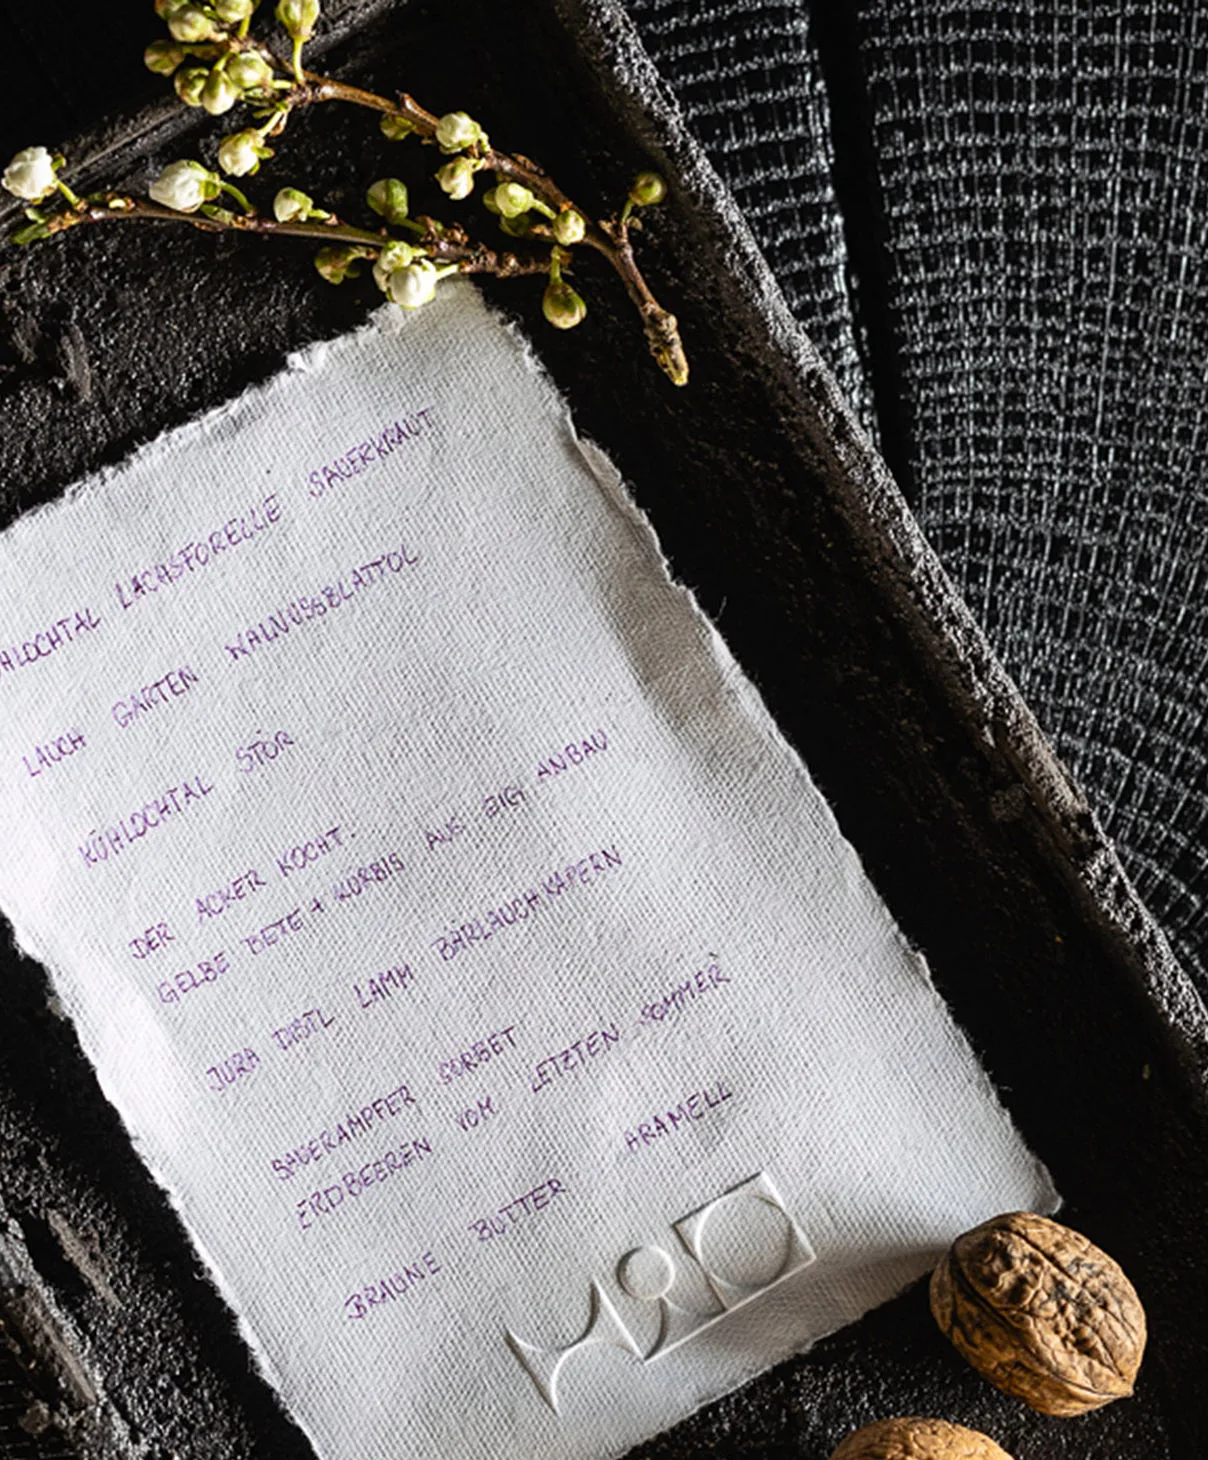 HLOCHTAL LACHSFORELLE SAUERKRAUT
LAUCH GARTEN WALNUSSBLATTÖL
KÜHLOCHTAL STÖR
DER ACKER KOCHT.
GELBE BETE + KÜRBIS AUS BIGI ANBAU
JURA DISTL LAMM BÄRLAUCHKAPERN
SAUERAMPFER SORBET
ERDBEEREN VOM LETZTEN SOMMER
BRAUNE BUTTER ARAMELL